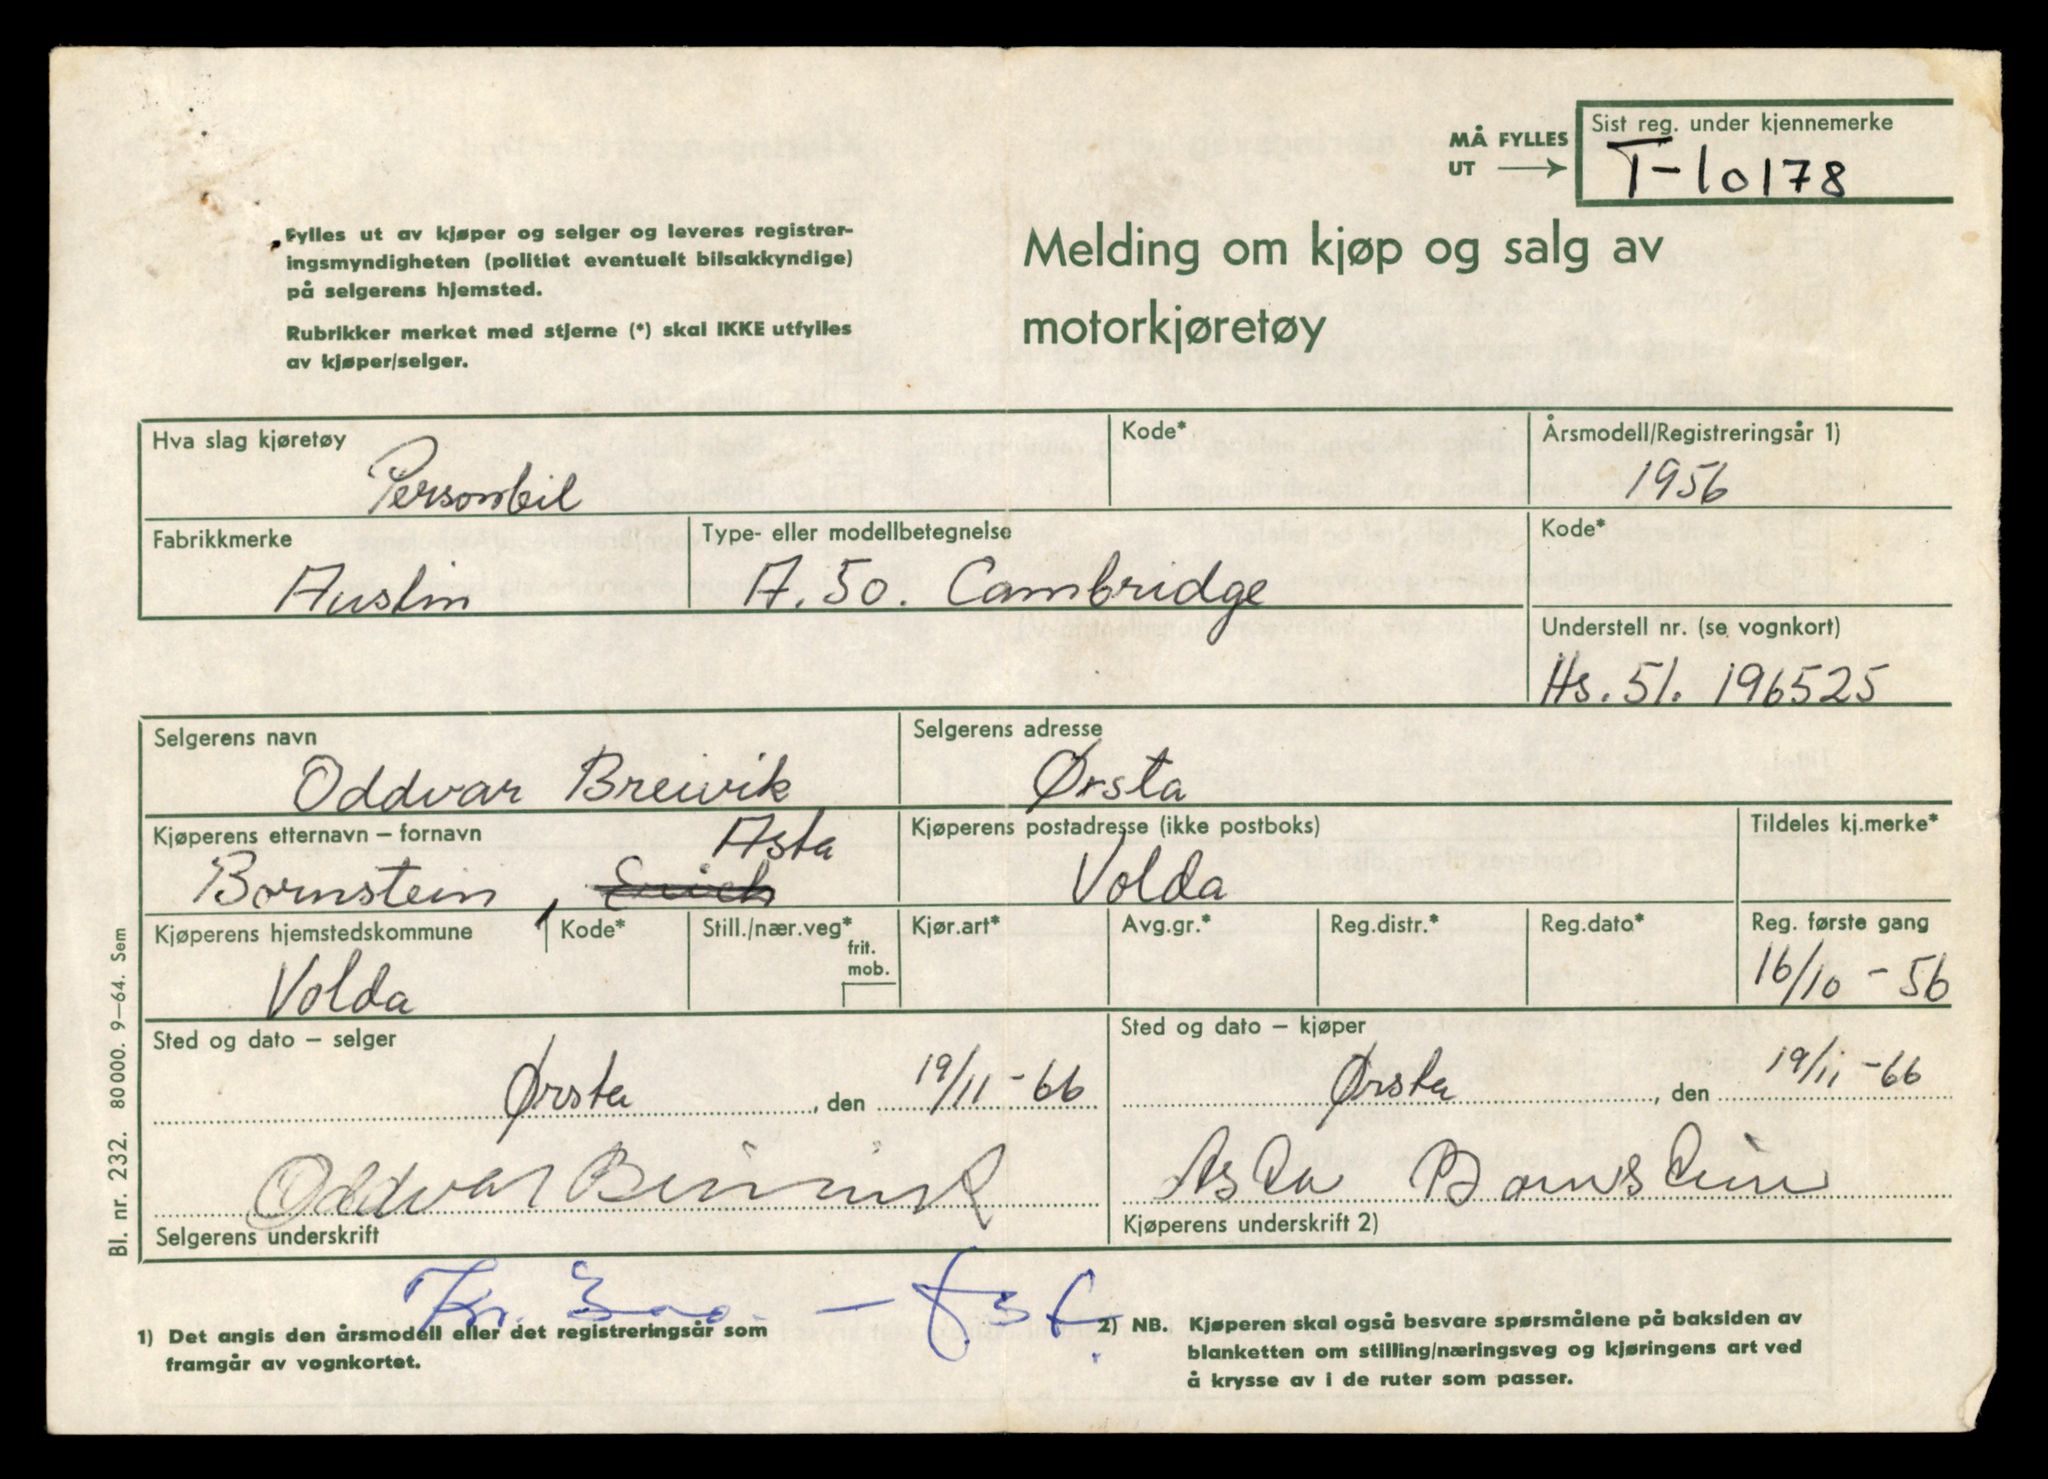 MÅ FYLLES
UT
Sist reg. under kjennemerke
T-10178
Fylles ut av kjøper og selger og leveres registrer-
ingsmyndigheten (politiet eventuelt bilsakkyndige)
på selgerens hjemsted.
Rubrikker merket med stjerne (*) skal IKKE utfylles
av kjøper/selger.
Melding om kjøp og salg av
motorkjøretøy
Hva slag kjøretøy
Personbil
Kode*
Årsmodell/Registreringsår 1)
1956
Fabrikkmerke
Austin
Type- eller modellbetegnelse
A. 50. Cambridge
Kode*
Understell nr. (se vognkort)
Hs. 51. 196525
Selgerens navn
Oddvar Breivik
Selgerens adresse
Ørsta
Kjøperens etternavn – fornavn
Asta
Bornstein, Erich
Kjøperens postadresse (ikke postboks)
Volda
Tildeles kj.merke*
Kjøperens hjemstedskommune
Volda
Kode*
Still./nær.veg*
frit.
mob.
Kjør.art*
Avg.gr.*
Reg.distr.*
Reg.dato*
Reg. første gang
16/10 - 56
Sted og dato – selger
Ørsta, den 19/11-66
Sted og dato – kjøper
Ørsta, den 19/11-66
Oddvar Breivik
Selgerens underskrift
Asta Bornstein
Kjøperens underskrift 2)
Kr.
1) Det angis den årsmodell eller det registreringsår som
framgår av vognkortet.
2) NB. Kjøperen skal også besvare spørsmålene på baksiden av
blanketten om stilling/næringsveg og kjøringens art ved
å krysse av i de ruter som passer.
Bl. nr. 232. 80 000. 9–64. Sem